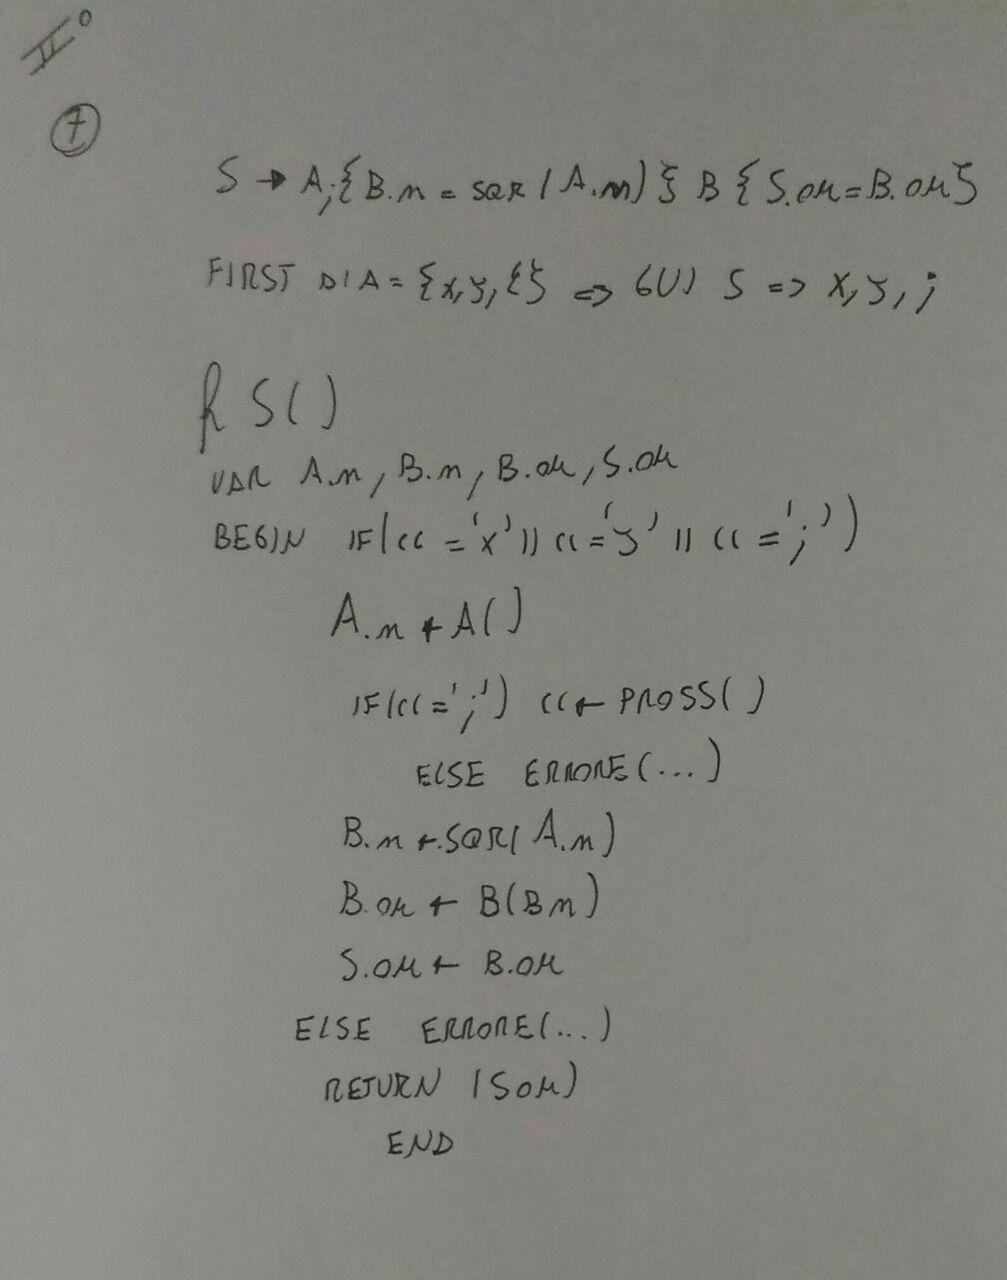 II°
7
S → A;{B.n = SQR(A.n)} B {S.ok=B.ok}
FIRST DI A = {x,y,ε} => GUI S => x,y,;
f S()
VAR A.n, B.n, B.ok, S.ok
BEGIN IF(cc ='x' || cc='y' || cc =';')
A.n ← A()
IF(cc=';') cc← PROSS()
ELSE ERRORE(...)
B.n ← SQR(A.n)
B.ok ← B(Bn)
S.ok ← B.ok
ELSE ERRORE(...)
RETURN (Sok)
END